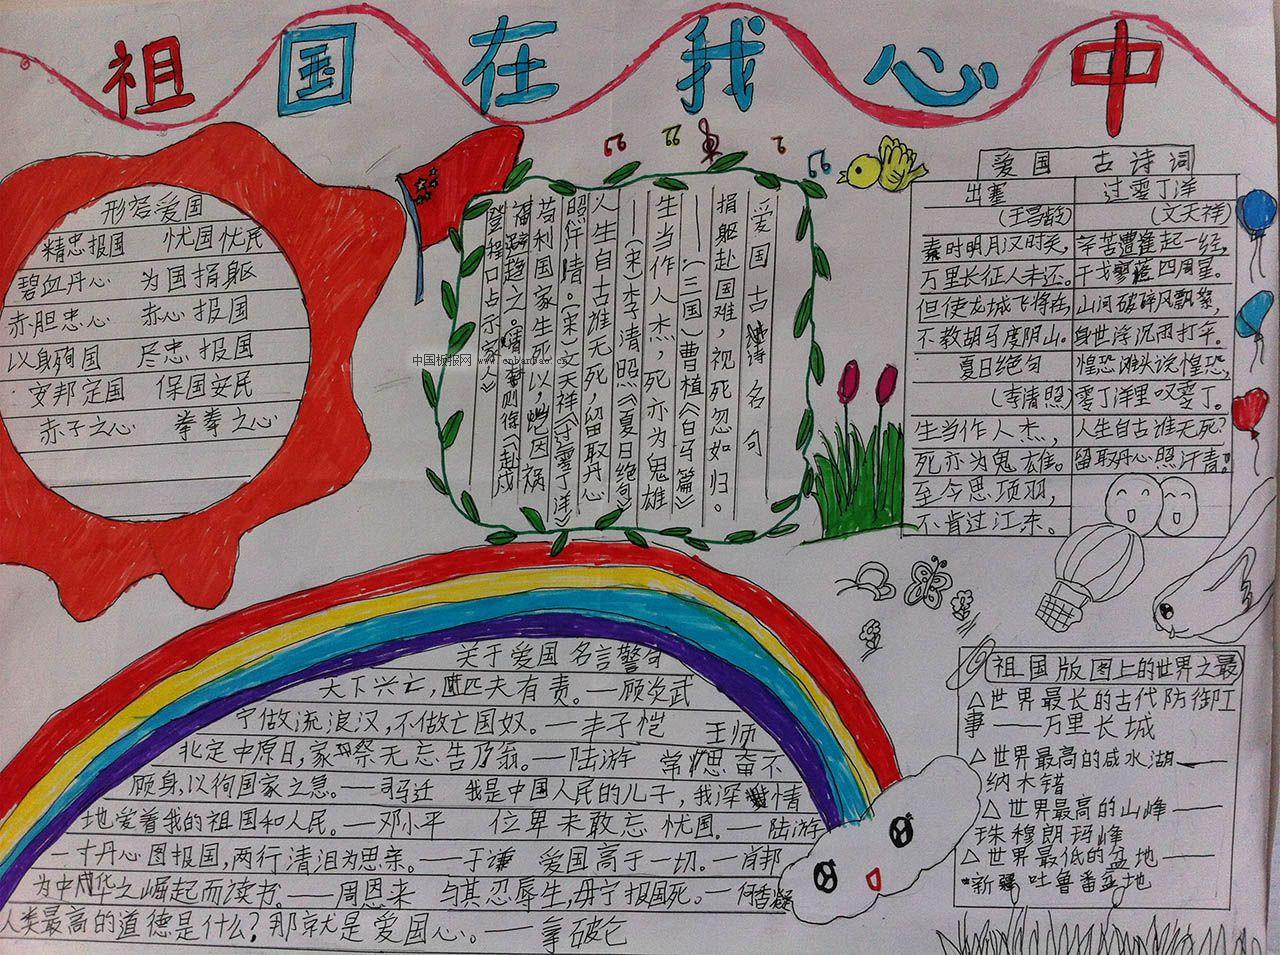 祖国在我心中
形容爱国
精忠报国 忧国忧民
碧血丹心 为国捐躯
赤胆忠心 赤心报国
以身殉国 尽忠报国
安邦定国 保国安民
赤子之心 拳拳之心
中国板报网 www.cnbanbao.cn
爱国古诗名句
捐躯赴国难，视死忽如归。
——（三国）曹植《白马篇》
生当作人杰，死亦为鬼雄
——（宋）李清照《夏日绝句》
人生自古谁无死，留取丹心
照汗青。（宋）文天祥《过零丁洋》
苟利国家生死以，岂因祸
福避趋之。（清）林则徐《赴戍
登程口占示家人》
爱国 古诗词
出塞
（王昌龄）
秦时明月汉时关，
万里长征人未还。
但使龙城飞将在，
不教胡马度阴山。
夏日绝句
（李清照）
生当作人杰，
死亦为鬼雄。
至今思项羽，
不肯过江东。
过零丁洋
（文天祥）
辛苦遭逢起一经，
干戈寥落四周星。
山河破碎风飘絮，
身世浮沉雨打平。
惶恐滩头说惶恐，
零丁洋里叹零丁。
人生自古谁无死？
留取丹心照汗青。
关于爱国名言警句
天下兴亡，匹夫有责。——顾炎武
宁做流浪汉，不做亡国奴。——丰子恺 王师
北定中原日，家祭无忘告乃翁。——陆游 常思奋不
顾身，以徇国家之急。——司马迁 我是中国人民的儿子，我深情
地爱着我的祖国和人民。——邓小平 位卑未敢忘忧国。——陆游
一寸丹心图报国，两行清泪为思亲。——于谦 爱国高于一切。——肖邦
为中华之崛起而读书。——周恩来 与其忍辱生，毋宁报国死。——何香凝
人类最高的道德是什么？那就是爱国心。——拿破仑
祖国版图上的世界之最
△世界最长的古代防御工
事——万里长城
△世界最高的咸水湖——
纳木错
△世界最高的山峰——
珠穆朗玛峰
△世界最低的盆地——
新疆吐鲁番盆地